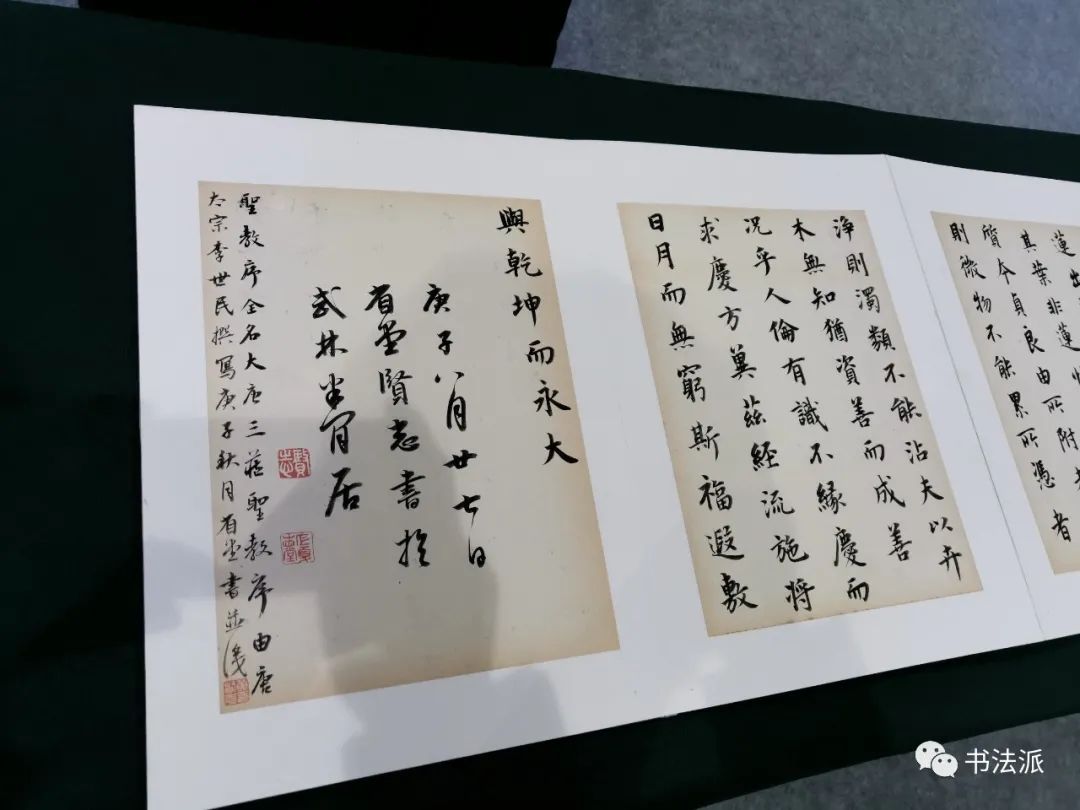 蓮出
其葉非蓮性
質本貞良由所附
則微物不能累所憑者
淨則濁類不能沾夫以卉
木無知猶資善而成善
況乎人倫有識不緣慶而
求慶方冀茲經流施將
日月而無窮斯福遐敷
與乾坤而永大
庚子八月廿七日
省堂賢志書於
武林半閒居
聖教序全名大唐三藏聖教序由唐
太宗李世民撰寫庚子秋月省堂書並識
书法派